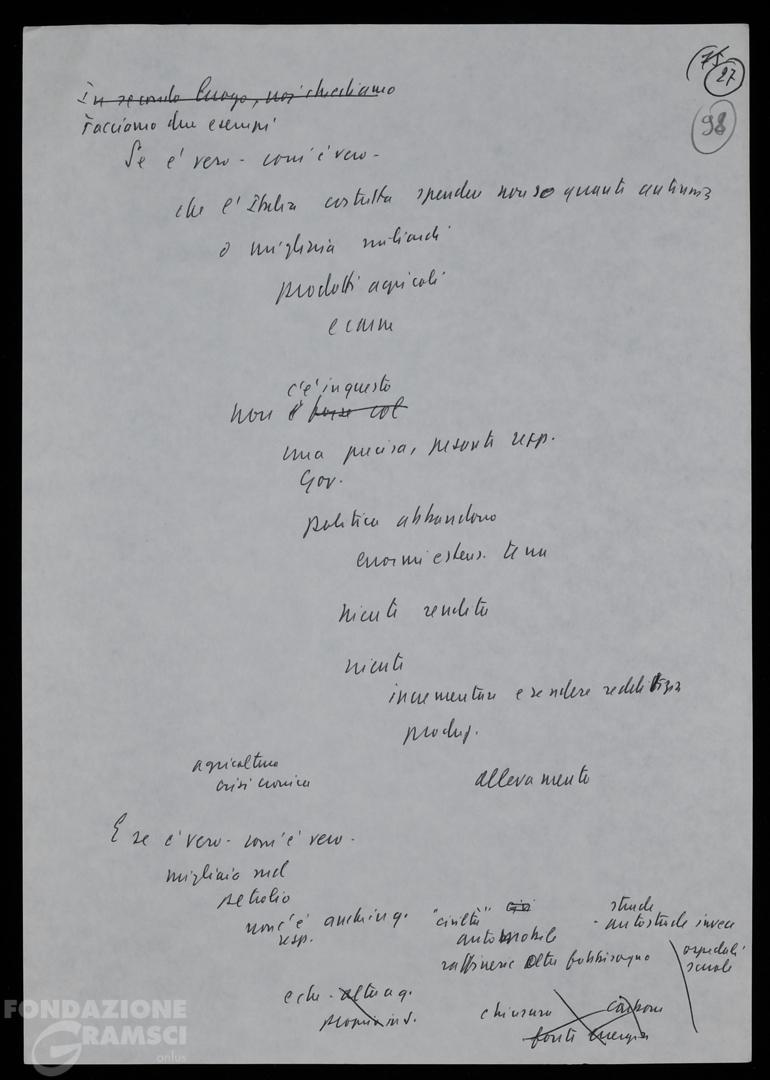 75
27
98
In secondo luogo, noi chiediamo
Facciamo due esempi
Se è vero - com'è vero -
che l'Italia costretta spendere non so quanti
o migliaia miliardi
prodotti agricoli
e carne
c'è in questo
non è forse col
una precisa, pesante resp.
Gov.
politica abbandono
enormi estens. terra
niente rendita
niente
incrementare e rendere redditizia
produz.
agricoltura
crisi cronica
allevamento
E se è vero - com'è vero -
migliaia mil
petrolio
non c'è anche in q.
resp.
"civiltà"
automobile
strade
- autostrade invece
raffinerie oltre fabbisogno
ospedali
scuole
e che - altra q.
propria in s.
chiusura carbone
fonti energia
FONDAZIONE
GRAMSCI
onlus